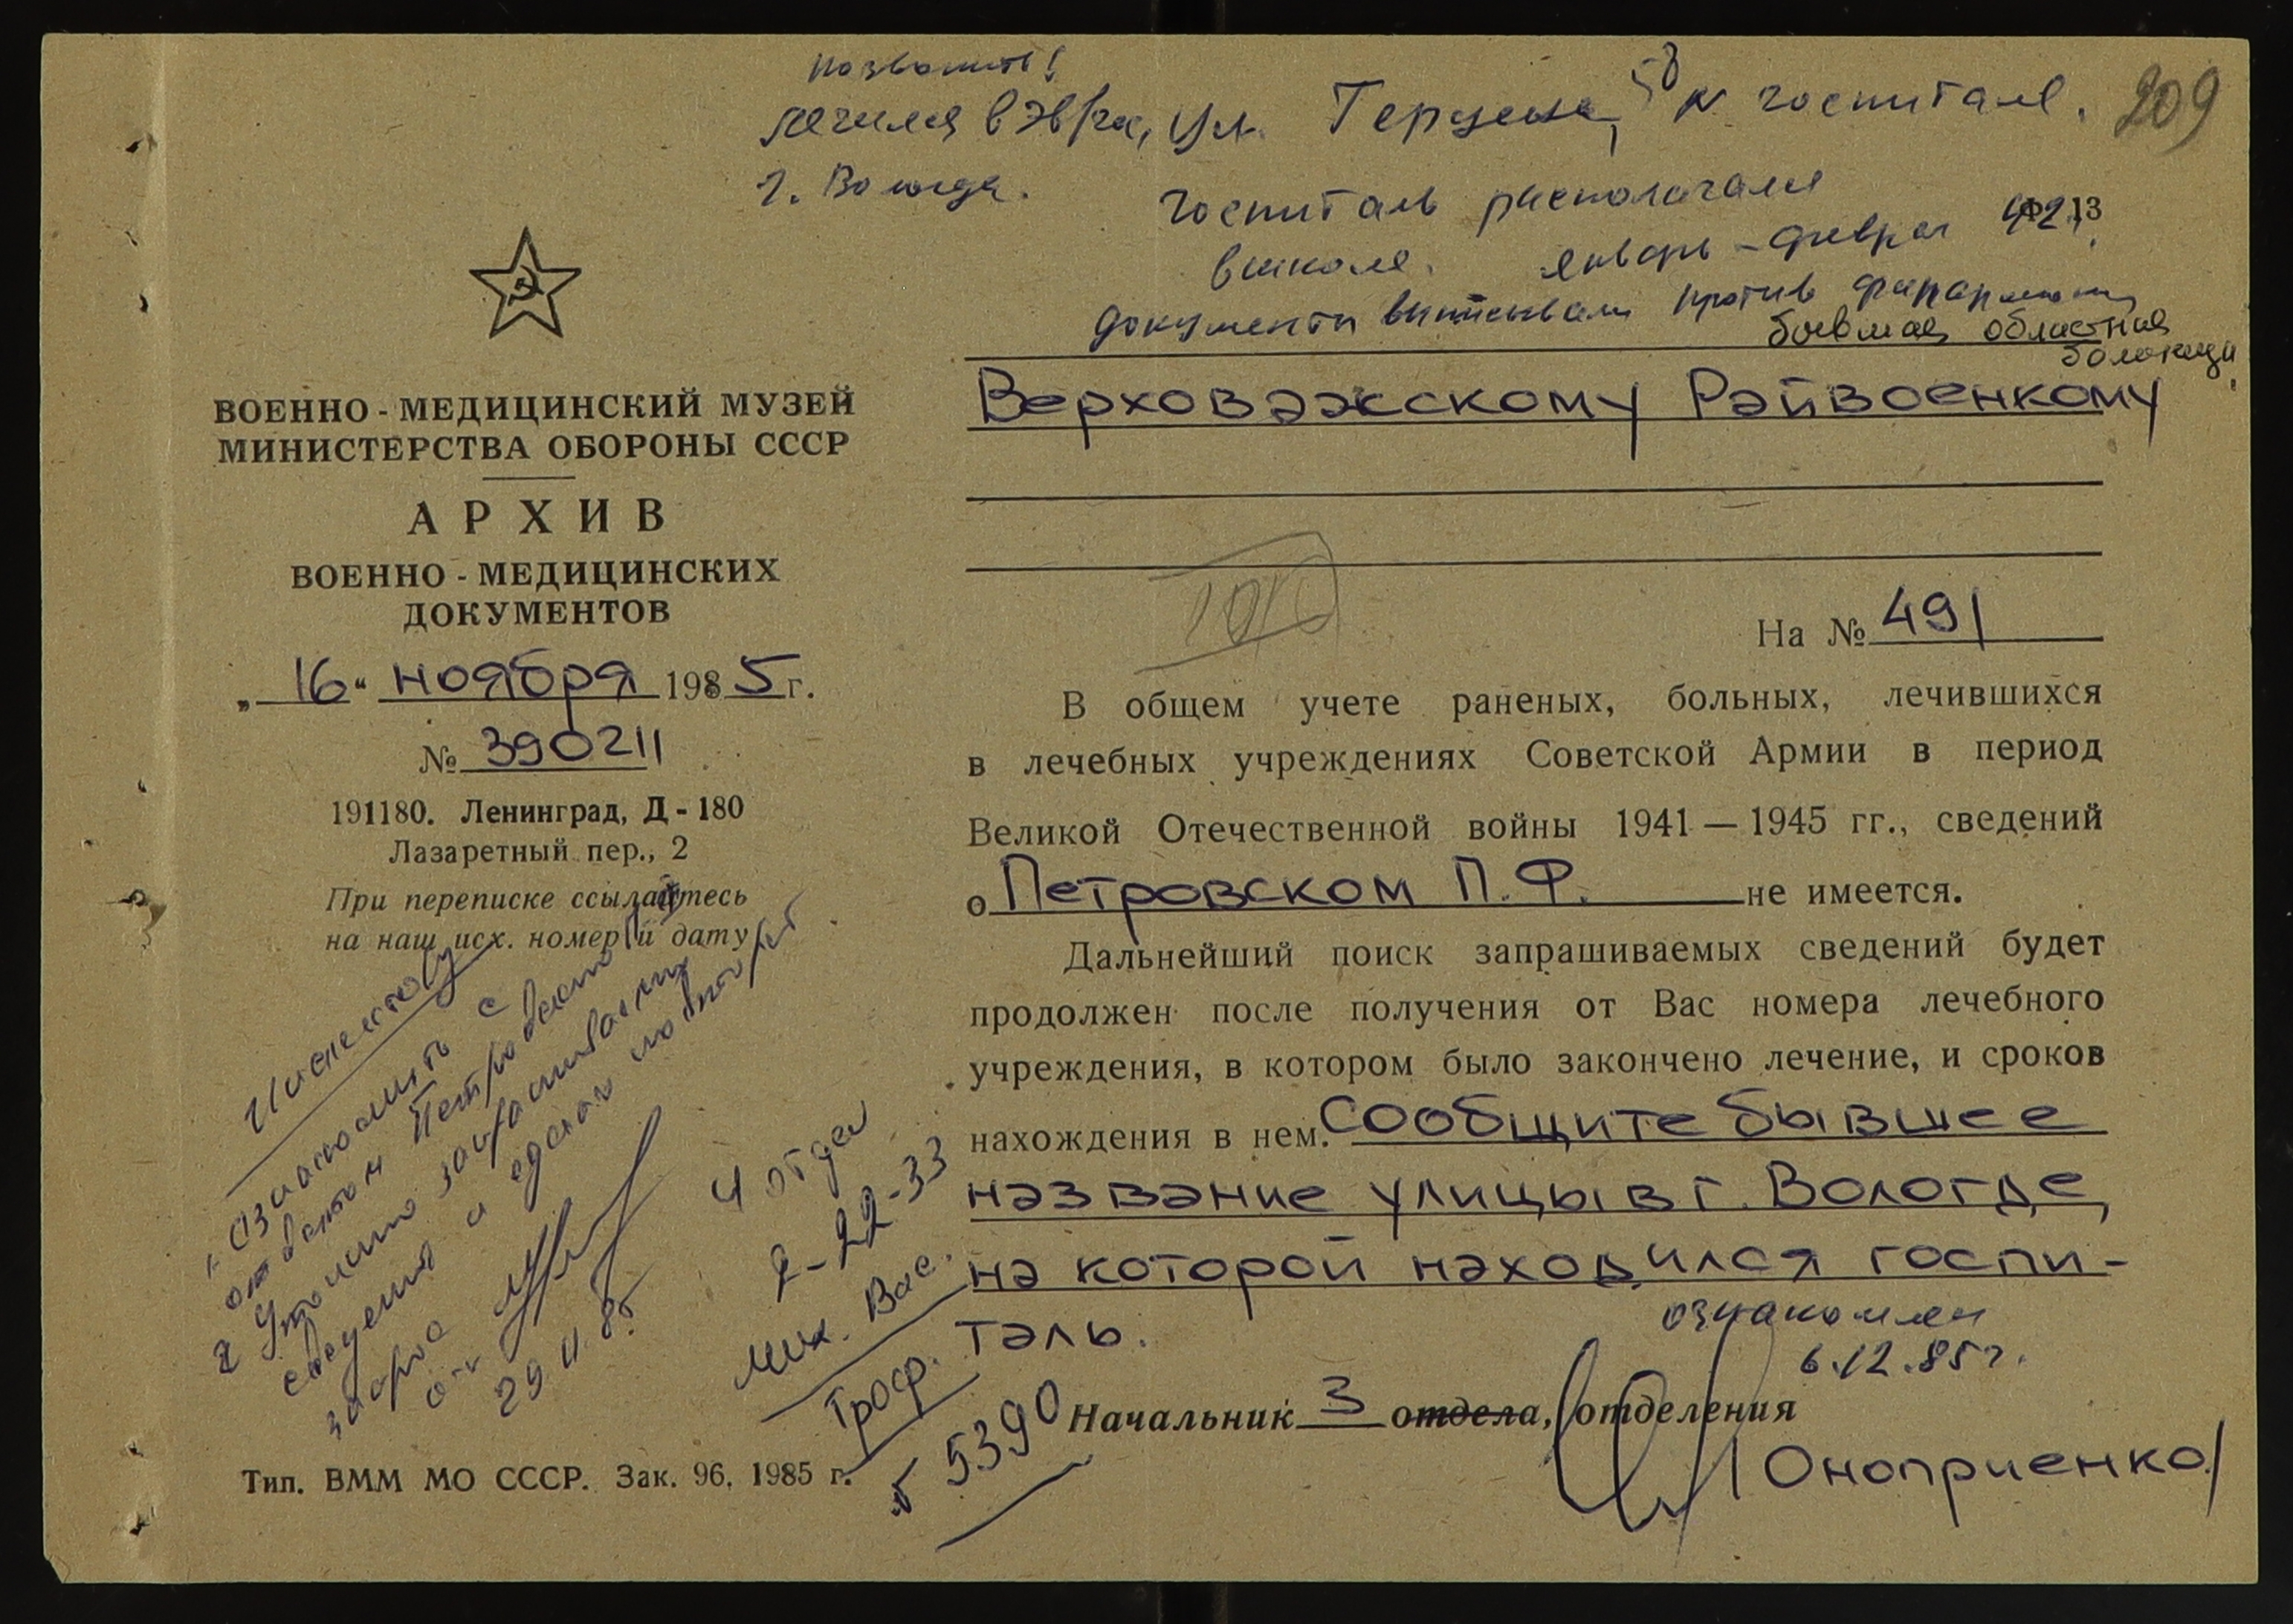 позвонить!
лечился в ЭВГ, ул. Герцена, № госпиталя.
209
г. Вологда.
госпиталь располагался
Ф. 13
в школе. январь - феврал 42 г.
документы выписывали против
бывшая областная
больница
ВОЕННО - МЕДИЦИНСКИЙ МУЗЕЙ
МИНИСТЕРСТВА ОБОРОНЫ СССР
АРХИВ
ВОЕННО - МЕДИЦИНСКИХ
ДОКУМЕНТОВ
„16“ ноября 1985 г.
№ 390211
191180. Ленинград, Д - 180
Лазаретный пер., 2
При переписке ссылайтесь
на наш исх. номер и дату
Верховажскому Райвоенкому
На № 491
В общем учете раненых, больных, лечившихся
в лечебных учреждениях Советской Армии в период
Великой Отечественной войны 1941 — 1945 гг., сведений
о Петровском П. Ф. не имеется.
Дальнейший поиск запрашиваемых сведений будет
продолжен после получения от Вас номера лечебного
учреждения, в котором было закончено лечение, и сроков
нахождения в нем. Сообщите бывшее
название улицы в г. Вологде,
на которой находился госпи-
таль.
ознакомлен
6.12.85г.
Начальник 3 отдела, отделения
/Оноприенко/
ответом Петровского
и уточнить запрашиваемые
сведения и сделать повторный
запрос
29.11.85
4 отдел
2-22-33
Мих. Вас.
Проф.
5390
Тип. ВММ МО СССР. Зак. 96, 1985 г.